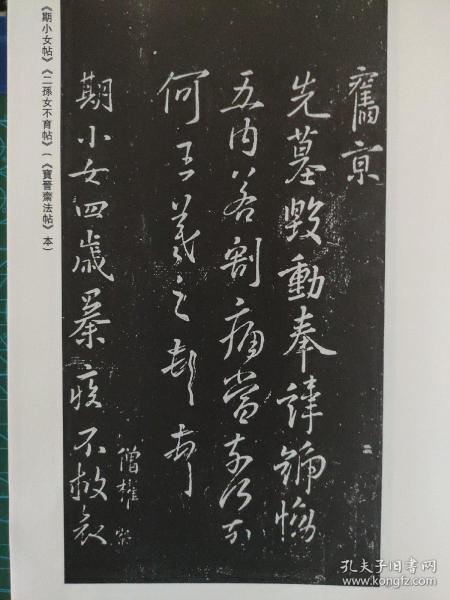 舊京
先墓毀動奉諱號惋
五内若割痛當奈何奈
何王羲之頓首
期小女四歲暴疾不救哀
僧權
《期小女帖》《二孫女不育帖》(《寶晉齋法帖》本)
孔夫子旧书网
www.kongfz.com